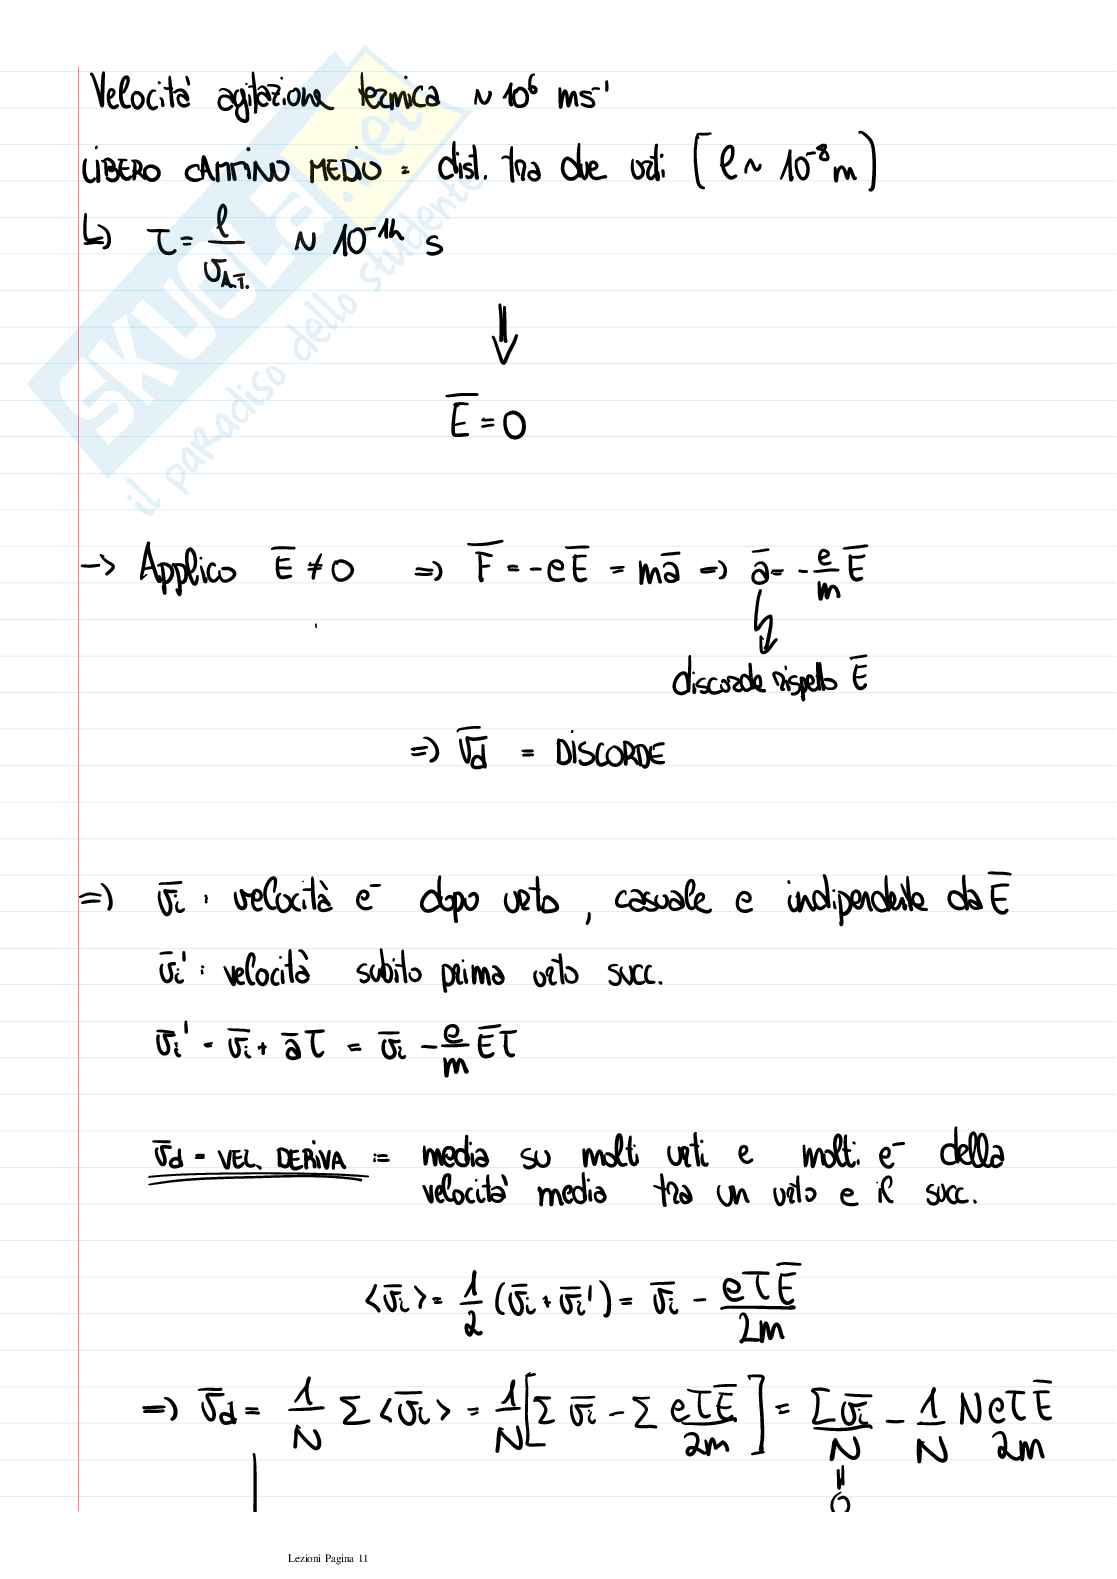 Velocità agitazione termica ~ 10⁶ ms⁻¹
LIBERO CAMMINO MEDIO = dist. tra due urti [ℓ ~ 10⁻⁸ m]
↳) τ = ℓ/v_A.T. ~ 10⁻¹⁴ s
⇓
E̅ = 0
-> Applico E̅ ≠ 0 => F̅ = -eE̅ = ma̅ => a̅ = -e/m E̅
discorde rispetto E̅
=> v̅d = DISCORDE
=> v̅i : velocità e⁻ dopo urto, casuale e indipendente da E̅
v̅i' : velocità subito prima urto succ.
v̅i' = v̅i + a̅τ = v̅i - e/m E̅τ
v̅d = VEL. DERIVA := media su molti urti e molti e⁻ della
velocità media tra un urto e il succ.
<v̅i> = 1/2 (v̅i + v̅i') = v̅i - eτE̅/2m
=> v̅d = 1/N Σ <v̅i> = 1/N [Σ v̅i - Σ eτE̅/2m] = Σv̅i/N - 1/N N eτE̅/2m
"
0
Lezioni Pagina 11
SKUOLA.net
il paradiso dello studente